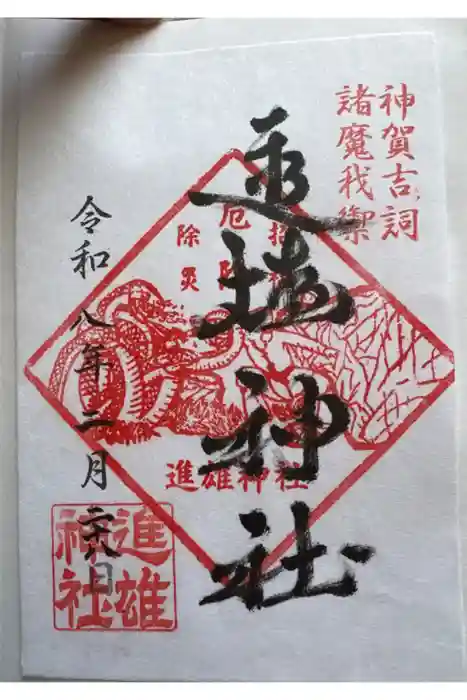 神賀吉詞
諸魔我禦
進雄神社
厄
除災
進雄神社
令和八年二月二八日
進雄神社